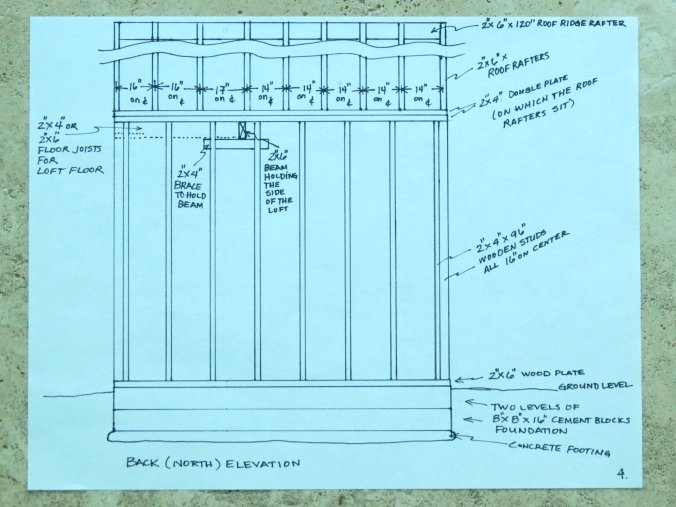 2" x 6" x 120" ROOF RIDGE RAFTER
2" x 6" x
ROOF RAFTERS
16" 16" 17" 14" 14" 14" 14" 14"
on ¢ on ¢ on ¢ on ¢ on ¢ on ¢ on ¢ on ¢
2" x 4" DOUBLE PLATE
(ON WHICH THE ROOF
RAFTERS SIT)
2" x 4" OR
2" x 6"
FLOOR JOISTS
FOR
LOFT FLOOR
2" x 4"
BRACE
TO HOLD
BEAM
2" x 6"
BEAM
HOLDING
THE
SIDE
OF THE
LOFT
2" x 4" x 96"
WOODEN STUDS
ALL 16" ON CENTER
2" x 6" WOOD PLATE
GROUND LEVEL
TWO LEVELS OF
8" x 8" x 16" CEMENT BLOCKS
FOUNDATION
CONCRETE FOOTING
BACK (NORTH) ELEVATION
4.